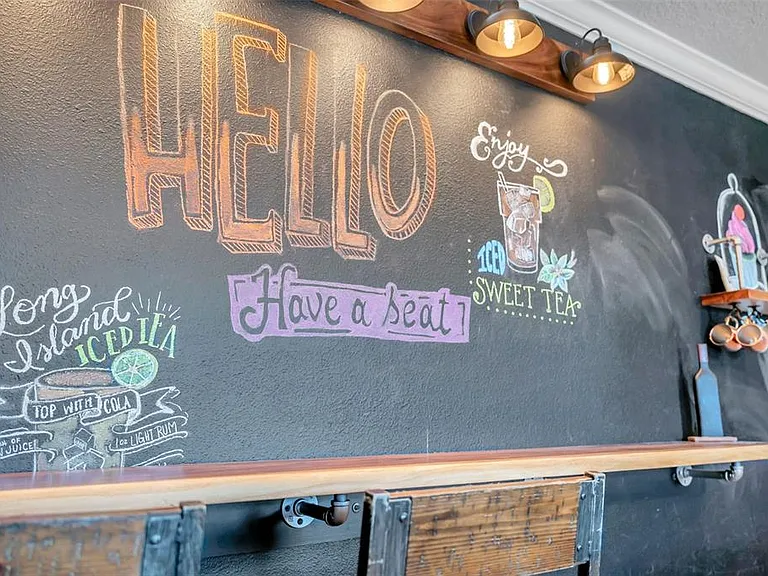 HELLO
Have a seat
Enjoy
ICED
SWEET TEA
Long
Island
ICED TEA
TOP WITH COLA
OF
JUICE
1 oz LIGHT RUM